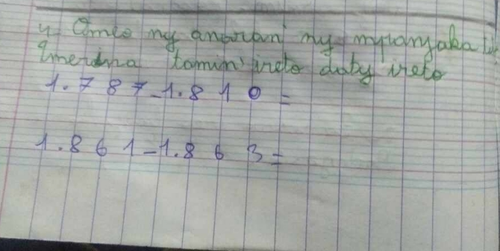 4. Omeo ny anaran' ny mpanjaka t
Imerina tamin' ireto daty ireto
1.787-1.810=
1.861-1.863=